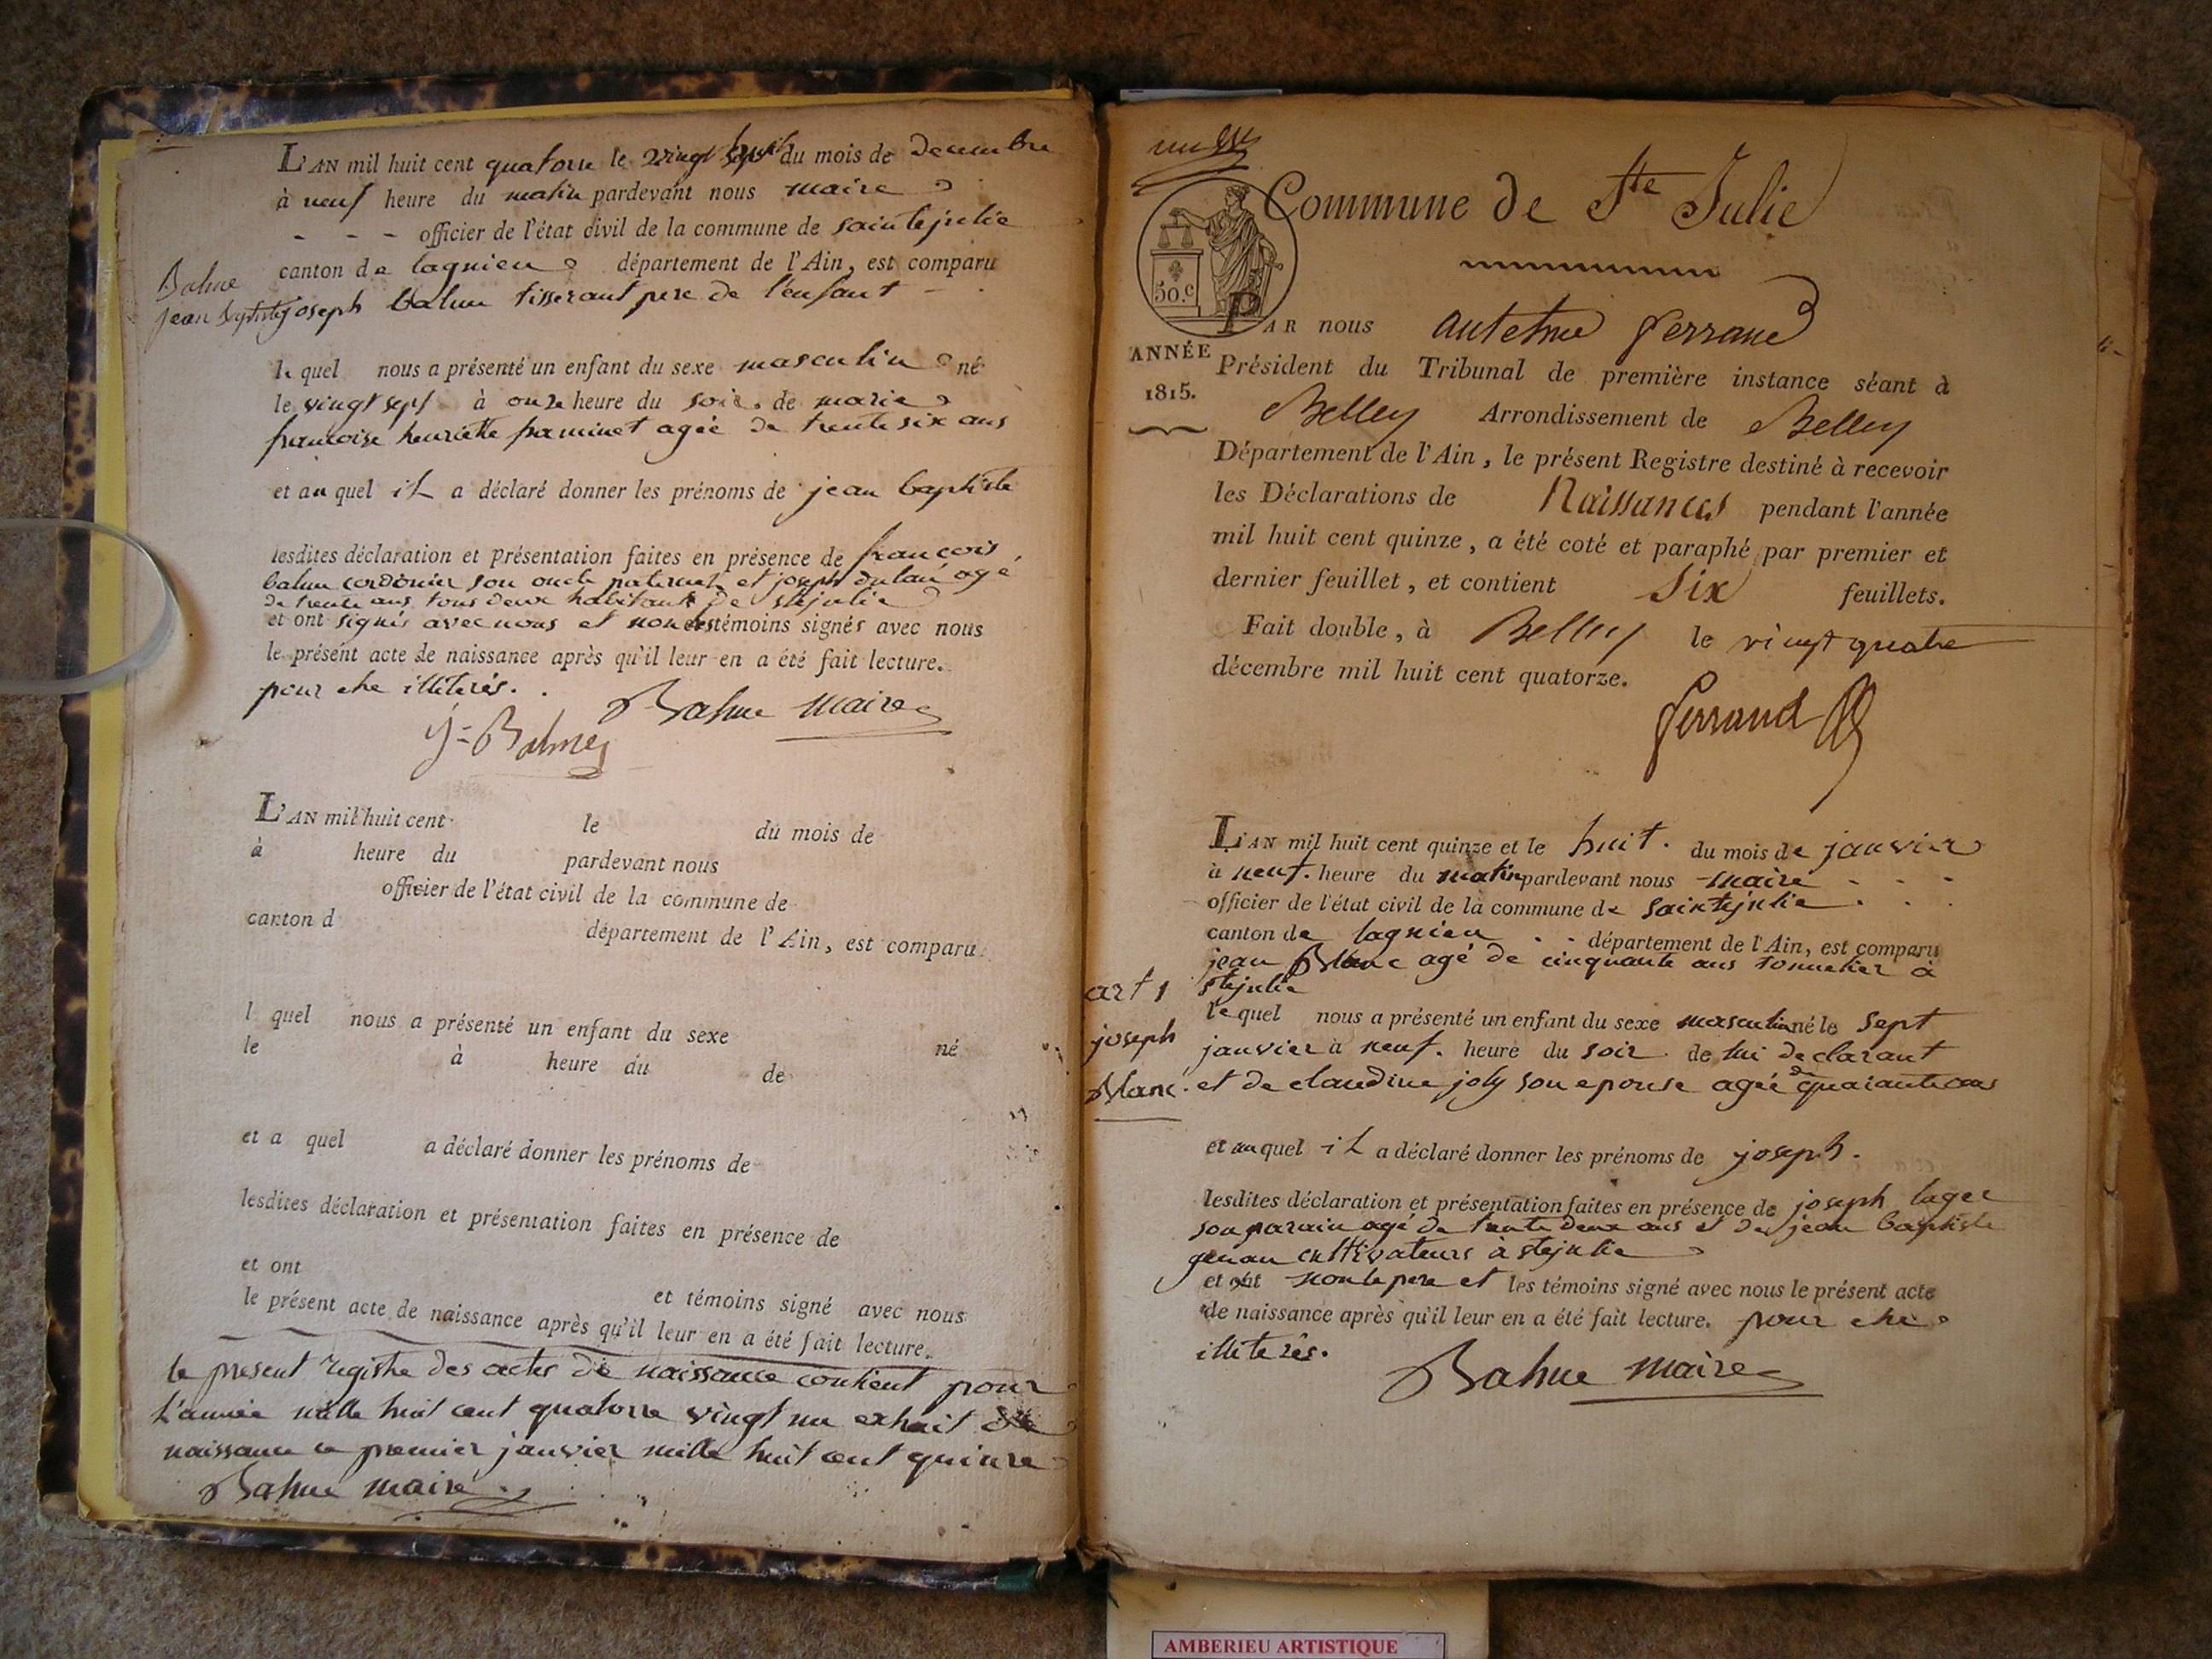 L'AN mil huit cent quatorze le vingt huit du mois de decembre
à neuf heure du matin pardevant nous maire
officier de l'état civil de la commune de saintejulie
canton de lagnieu département de l'Ain, est comparu
Balme
jean Baptiste
joseph balme tisserant pere de l'enfant
le quel nous a présenté un enfant du sexe masculin né
le vingt sept à onze heure du soir de marie
francoise henriette framinet agée de trente six ans
et au quel il a déclaré donner les prénoms de jean baptiste
lesdites déclaration et présentation faites en présence de francois
balme cordonier son oncle paternel et joseph agé
de trente ans tous deux habitant de stejulie
et ont signés avec nous et non les témoins signés avec nous
le présent acte de naissance après qu'il leur en a été fait lecture.
pour etre illiterés.
Balme maire
J = Balme
L'AN mil huit cent le du mois de
à heure du pardevant nous
officier de l'état civil de la commune de
canton d département de l'Ain, est comparu
l quel nous a présenté un enfant du sexe né
le à heure du de
et a quel a déclaré donner les prénoms de
lesdites déclaration et présentation faites en présence de
et ont et témoins signé avec nous
le présent acte de naissance après qu'il leur en a été fait lecture.
le present registre des actes de naissance contient pour
l'année mille huit cent quatorze vingt un extrait de
naissance ce premier janvier mille huit cent quinze
Balme maire
Commune de Ste Julie
50.c
ANNÉE
1815.
PAR nous antelme ferrand
Président du Tribunal de première instance séant à
Belley Arrondissement de Belley
Département de l'Ain, le présent Registre destiné à recevoir
les Déclarations de Naissances pendant l'année
mil huit cent quinze, a été coté et paraphé par premier et
dernier feuillet, et contient Six feuillets.
Fait double, à Belley le vingt quatre
décembre mil huit cent quatorze.
ferrand
L'AN mil huit cent quinze et le huit du mois de janvier
à neuf heure du matin pardevant nous maire
officier de l'état civil de la commune de saintejulie
canton de lagnieu département de l'Ain, est comparu
jean Blanc agé de cinquante ans tonnelier à
stejulie
art 1
joseph
Blanc
le quel nous a présenté un enfant du sexe masculin né le sept
janvier à neuf heure du soir de lui declarant
et de claudine joly son epouse agée de quarante ans
et au quel il a déclaré donner les prénoms de joseph.
lesdites déclaration et présentation faites en présence de joseph lager
son parain agé de trente deux ans et de jean baptiste
genau cultivateurs à stejulie
et ont non le pere et les témoins signé avec nous le présent acte
de naissance après qu'il leur en a été fait lecture. pour etre
illiterés.
Balme maire
AMBERIEU ARTISTIQUE